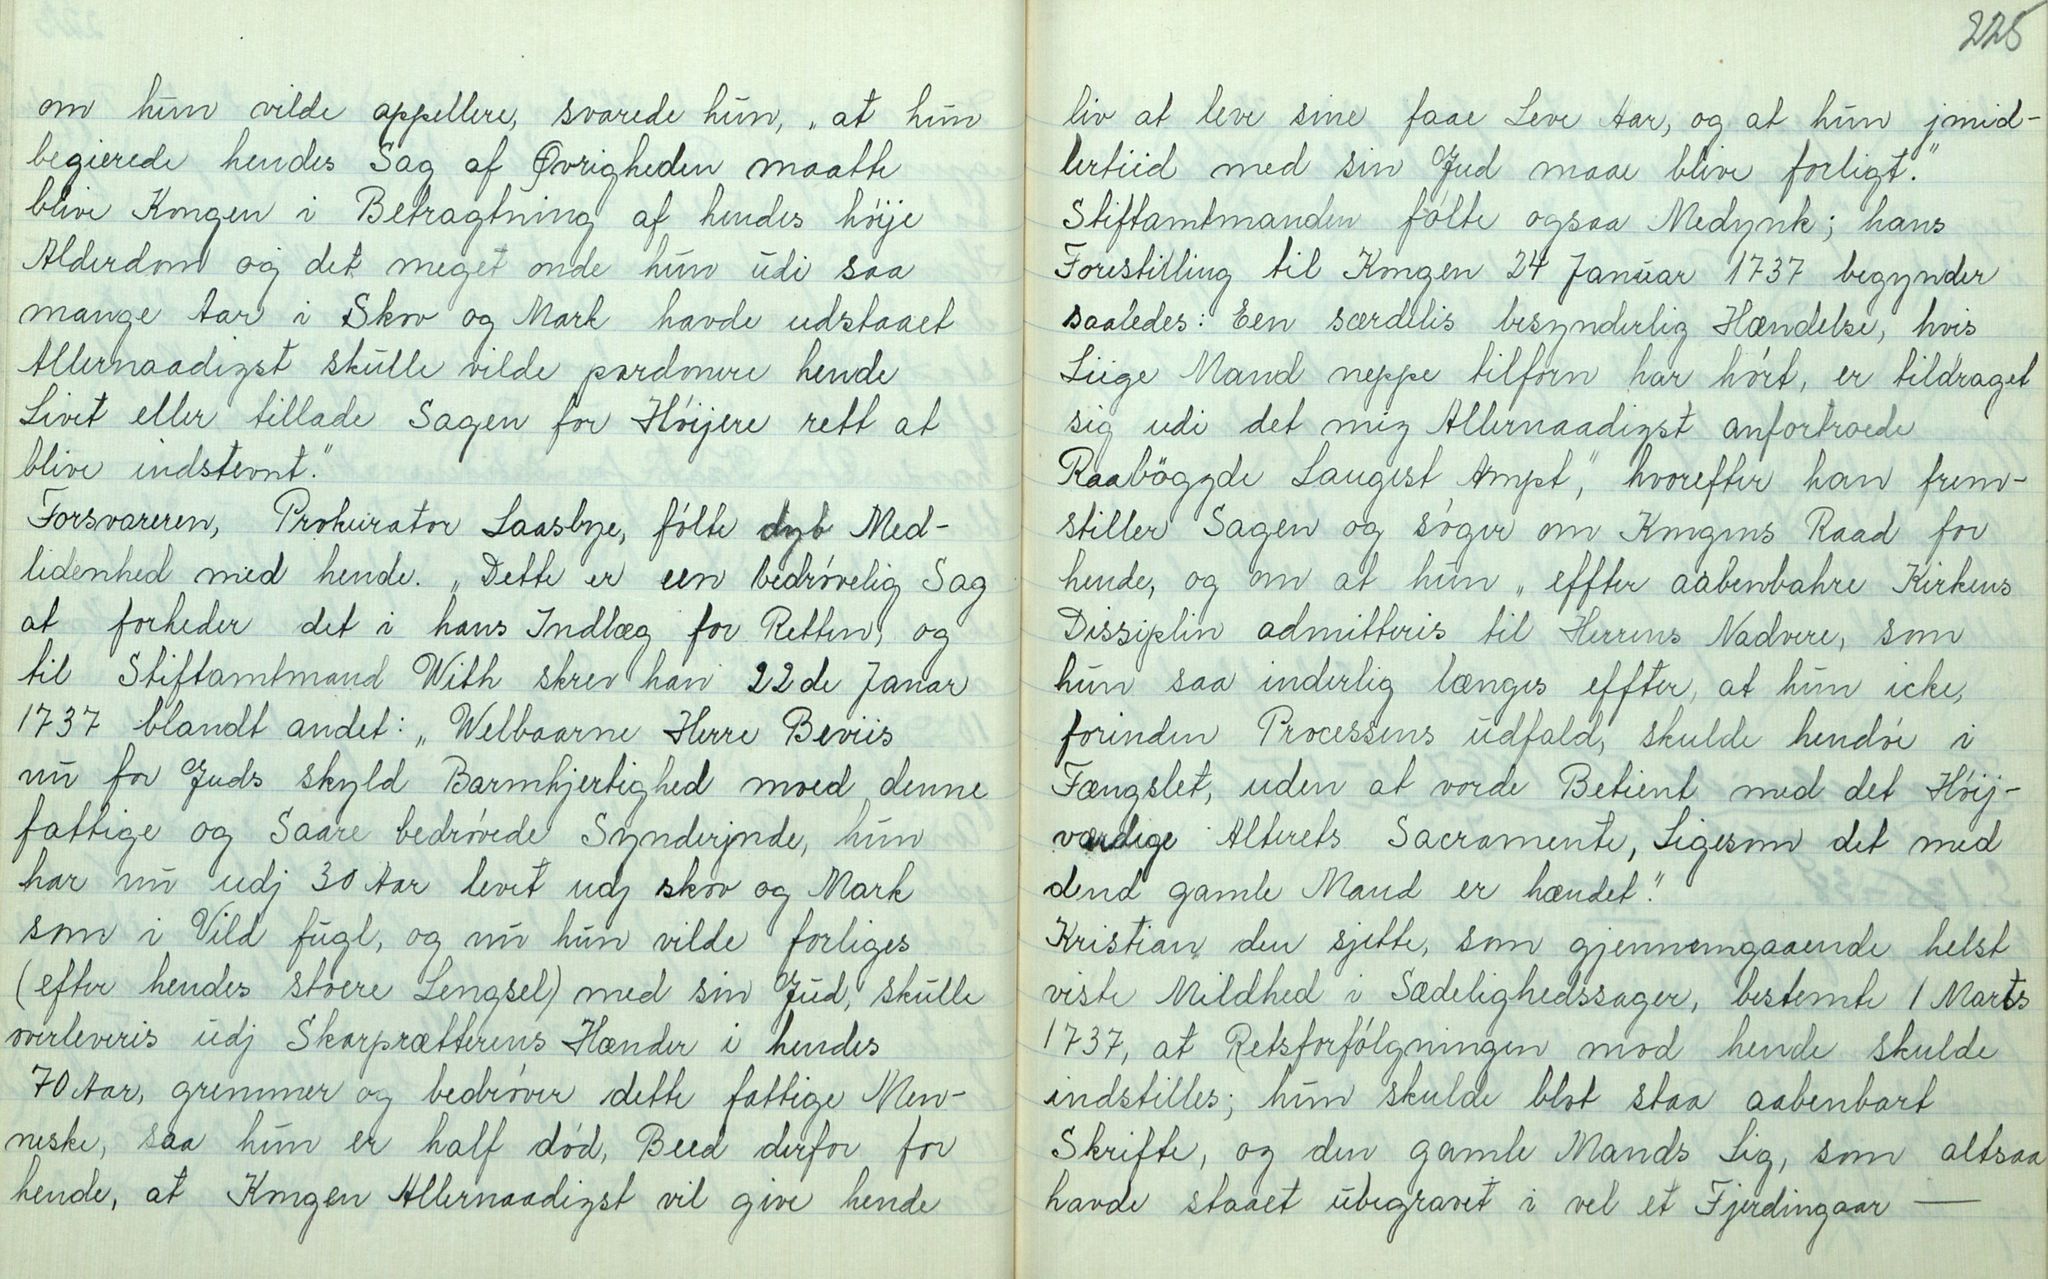 om hun vilde appellere, svarede hun, „at hun
begierede hendes Sag af Øvrigheden maatte
blive Kongen i Betragtning af hendes höije
Alderdom og det meget onde hun udi saa
mange Aar i Skov og Mark havde udstaaet
Allernaadigst skulle vilde pardonere hende
Livet eller tillade Sagen for Höijere rett at
blive indstevnt."
Forsvareren, Prokurator Laasbye, fólte dyb Med-
lidenhed med hende. „Dette er een bedróvelig Sag
at forheder det i hans Indlæg for Retten, og
til Stiftamtmand With skrev han 22de Janar
1737 blandt andet: „Welbaarne Herre Beviis
nu for Guds skyld Barmhjertighed moed denne
fattige og Saare bedróvede Synderjnde, hun
har nu udj 30 Aar levet udj skov og Mark
som i Vild fugl, og nu hun vilde forliges
(efter hendes stoere Lengsel) med sin Gud, skulle
overleveris udj Skarprætterens Hænder i hendes
70 Aar, gremmer og bedróver dette fattige Men-
neske, saa hun er half dód, Beed derfor for
hende, at Kongen Allernaadigst vil give hende
225
liv at leve sine faae Leve Aar, og at hun jmid-
lertiid med sin Gud maae blive forligt."
Stiftamtmanden fólte ogsaa Medynk; hans
Forestilling til Kongen 24 Januar 1737 begynder
saaledes: Een særdelis besynderlig Hændelse, hvis
Liige Mand neppe tilforn har hórt, er tildraget
sig udi det mig Allernaadigst anfortroede
Raaböggde Laugest Ampt", hvorefter han frem-
stiller Sagen og sóger om Kongens Raad for
hende, og om at hun „effter aabenbahre Kirkens
Dissiplin admitteris til Herrens Nadvere, som
hun saa inderlig længes effter, at hun icke,
forinden Processens udfald, skulde hendóe i
Fængslet, uden at vorde Betient med det Hóij-
værdige Alterets Sacramente, Ligesom det med
dend gamle Mand er hændet."
Kristian den sjette, som gjennemgaaende helst
viste Mildhed i Sædelighedssager, bestemte 1 Marts
1737, at Retsforfólgningen mod hende skulde
indstilles; hun skulde blot staa aabenbart
Skrifte, og den gamle Mands Lig, som altsaa
havde staaet ubegravet i vel et Fjerdingaar —